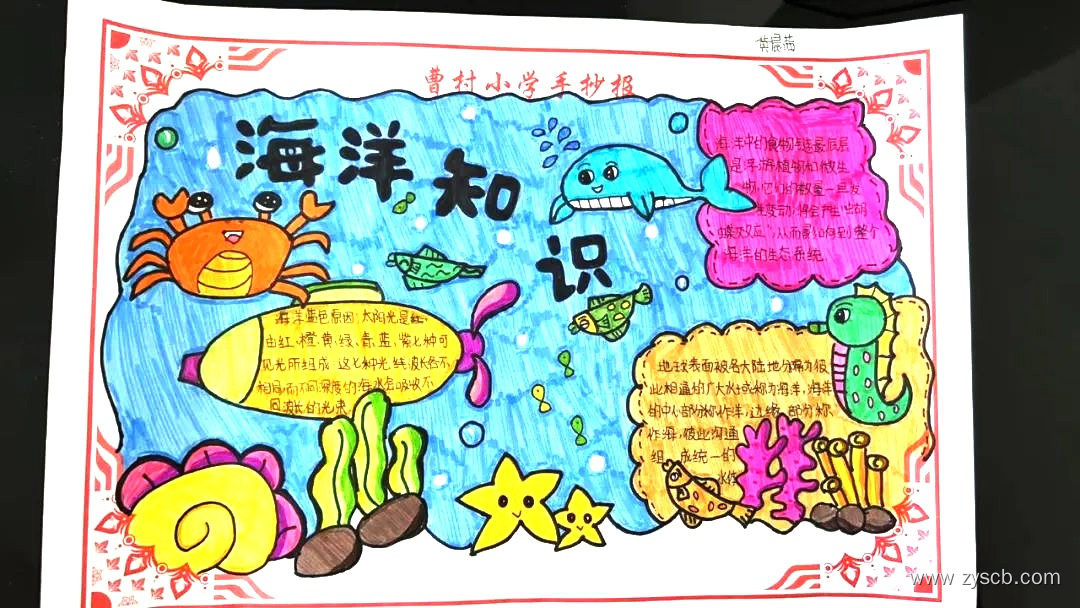 黄晨茜
曹村小学手抄报
海洋知识
海洋中的食物链最底层
是浮游植物和微生
物,它们的数量一旦发
生变动,将会产生“蝴
蝶效应”,从而影响到整个
海洋的生态系统。
海洋蓝色原因:太阳光是
由红、橙、黄、绿、青、蓝、紫七种可
见光所组成,这七种光线波长各不
相同,而不同深度的海水会吸收不
同波长的光束
地球表面被各大陆地分隔为彼
此相通的广大水域称为海洋,海洋
的中心部分称作洋,边缘部分称
作海,彼此沟通
组成统一的
水体
www.zyscb.com